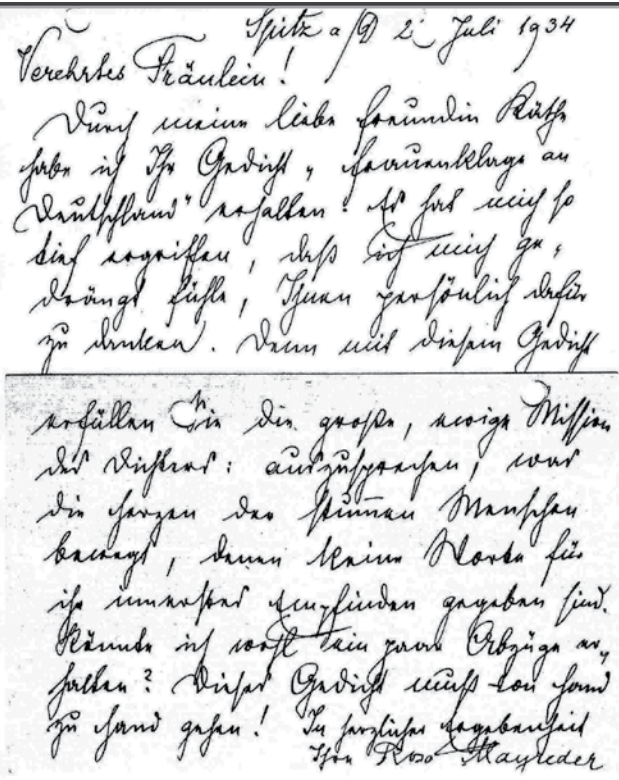 Spitz a/D 2. Juli 1934
Verehrtes Fräulein!
Durch meine liebe Freundin Käthe
habe ich Ihr Gedicht „Frauenklage an
Deutschland" erhalten. Es hat mich so
tief ergriffen, daß ich mich ge-
drängt fühle, Ihnen persönlich dafür
zu danken. Denn mit diesem Gedicht
erfüllen Sie die große, ewige Mission
des Dichters: auszusprechen, was
die Herzen der stummen Menschen
bewegt, denen keine Worte für
ihr innerstes Empfinden gegeben sind.
Könnte ich wohl ein paar Abzüge er-
halten? Dieses Gedicht muß von Hand
zu Hand gehen! In herzlicher Ergebenheit
Ihre Rosa Mayreder